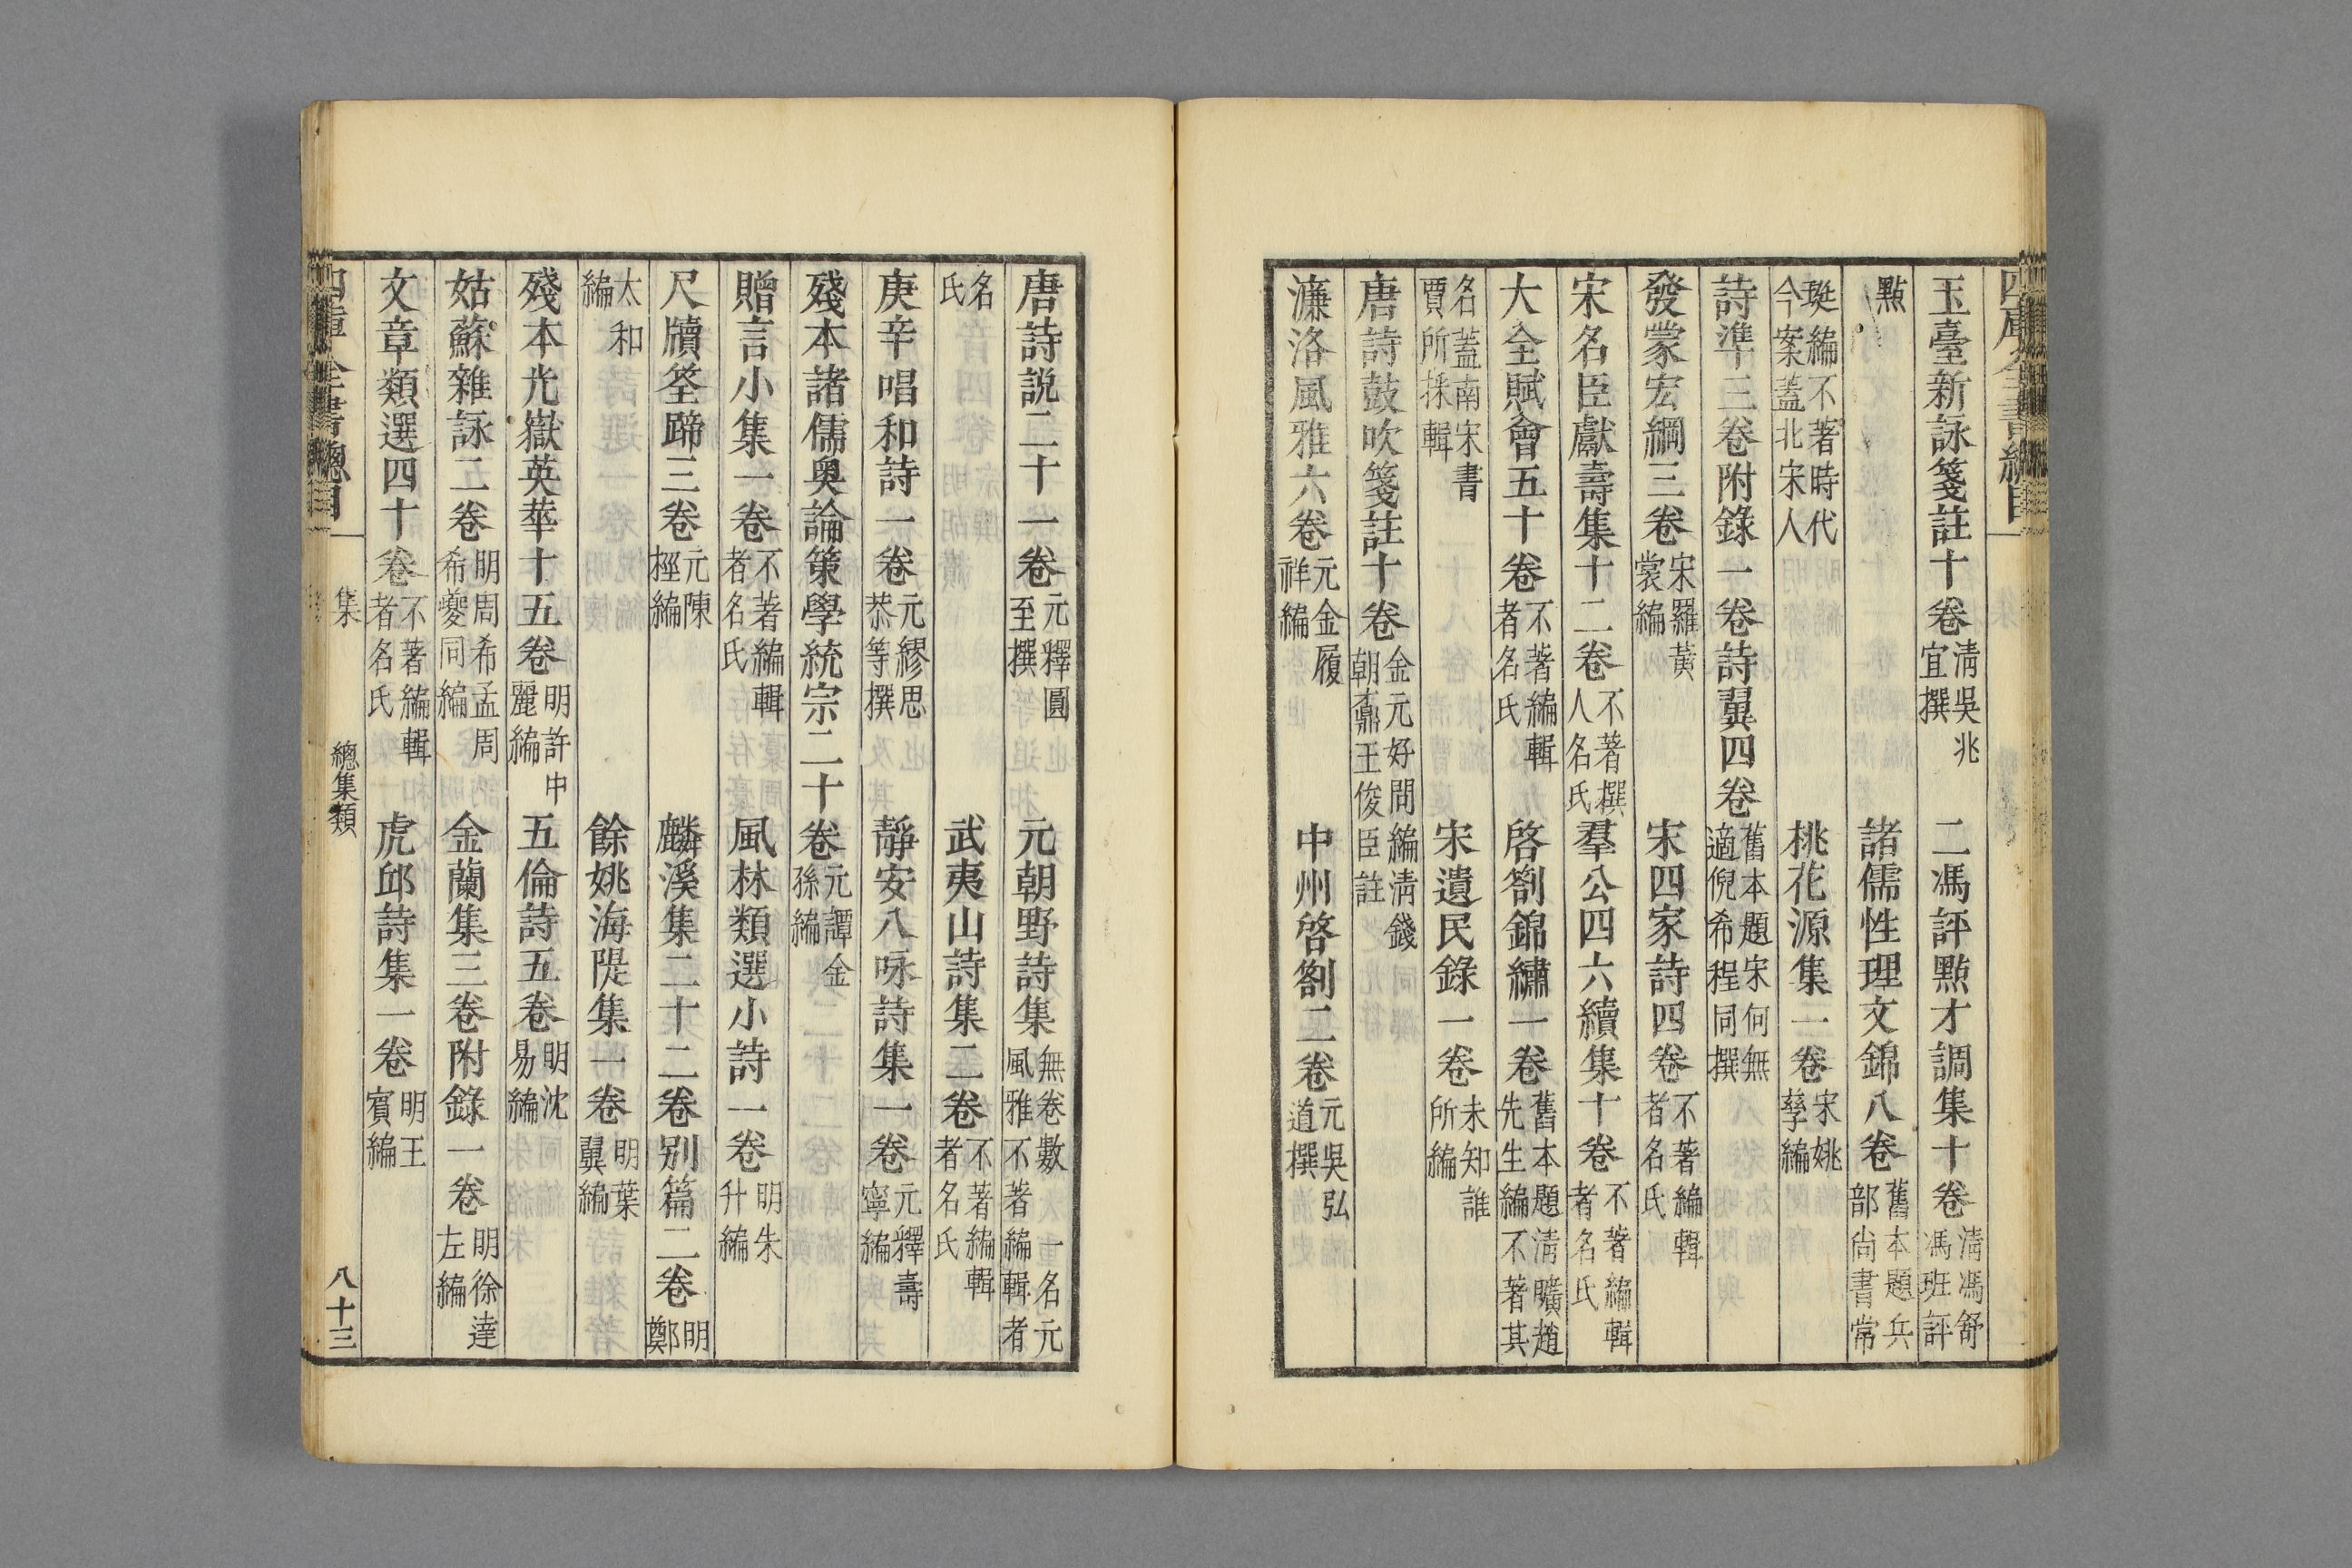 玉臺新詠箋註十卷清吳兆宜撰 二馮評點才調集十卷清馮舒馮班評
點 諸儒性理文錦八卷舊本題兵部尚書常
珽編不著時代今案蓋北宋人 桃花源集一卷宋姚孳編
詩準三卷附錄一卷詩翼四卷舊本題宋何無適倪希程同撰
發蒙宏綱三卷宋羅黃裳編 宋四家詩四卷不著編輯者名氏
宋名臣獻壽集十二卷不著撰人名氏 羣公四六續集十卷不著編輯者名氏
大全賦會五十卷不著編輯者名氏 啓劄錦繡一卷舊本題清曠趙先生編不著其
名蓋南宋書賈所採輯 宋遺民錄一卷未知誰所編
唐詩鼓吹箋註十卷金元好問編清錢朝鼒王俊臣註
濂洛風雅六卷元金履祥編 中州啓劄二卷元吳弘道撰
唐詩說二十一卷元釋圓至撰 元朝野詩集無卷數一名元風雅不著編輯者
名氏 武夷山詩集二卷不著編輯者名氏
庚辛唱和詩一卷元繆思恭等撰 靜安八咏詩集一卷元釋壽寧編
殘本諸儒奧論策學統宗二十卷元譚金孫編
贈言小集一卷不著編輯者名氏 風林類選小詩一卷明朱升編
尺牘筌蹄三卷元陳桱編 麟溪集二十二卷別篇二卷明鄭
太和編 餘姚海隄集一卷明葉翼編
殘本光嶽英華十五卷明許中麗編 五倫詩五卷明沈易編
姑蘇雜詠二卷明周希孟周希夔同編 金蘭集三卷附錄一卷明徐達左編
文章類選四十卷不著編輯者名氏 虎邱詩集一卷明王賓編
四庫全書總目 集 總集類 八十三